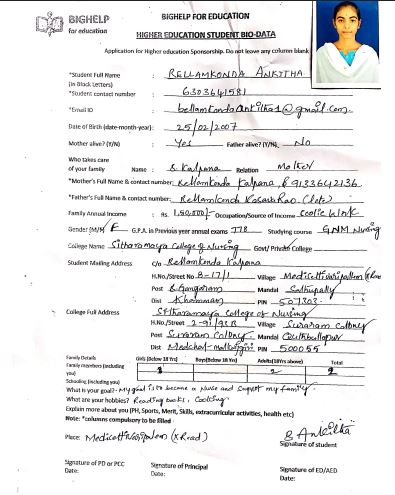 BIGHELP
for education
BIGHELP FOR EDUCATION
HIGHER EDUCATION STUDENT BIO-DATA
Application for Higher education Sponsorship. Do not leave any column blank
*Student Full Name : RELLAMKONDA ANKITHA
(in Block Letters)
*Student contact number : 6303641581
*Email ID : bellamkondaankitha1@gmail.com
Date of Birth (date-month-year): 25/02/2007
Mother alive? (Y/N) Yes Father alive? (Y/N) No
Who takes care
of your family Name : B Kalpana Relation Mother
*Mother's Full Name & contact number: Rellamkonda Kalpana & 9133642136
*Father's Full Name & contact number: Rellamkonda Rao (late)
Family Annual Income : Rs. 1,50,000/- Occupation/Source of Income Coolie Work
Gender (M/F) F G.P.A in Previous year annual exams 778 Studying course GNM Nursing
College Name Sitharamaya College of Nursing Govt/ Private College
Student Mailing Address c/o Rellamkonda Kalpana
H.No./Street No 8-17/1 Village
Post Gangaram Mandal Sathupally
Dist Khammam PIN 507303
College Full Address Sitharamaya College of Nursing
H.No./Street 2-91/93B Village Suraram Colony
Post Suraram Colony Mandal Quthbullapur
Dist Medchal-malkajgiri PIN 500055
Family Details Girls (Below 18 Yrs) Boys(Below 18 Yrs) Adults(18Yrs above) Total
Family members (including you) 2
Schooling (including you)
What is your goal? - My goal is to become a Nurse and support my family.
What are your hobbies? Reading books, Cooking
Explain more about you (PH, Sports, Merit, Skills, extracurricular activities, health etc)
Note: *columns compulsory to be filled
Place: (K Road) B Ankitha
Signature of student
Signature of PD or PCC Signature of Principal Signature of ED/AED
Date: Date: Date: